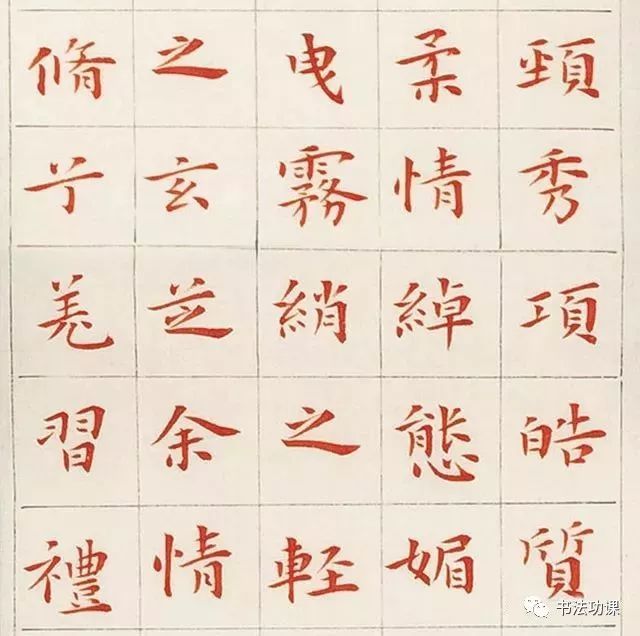 頸秀項皓質
柔情綽態媚
曳霧綃之輕
之玄芝余情
脩兮羌習禮
书法功课